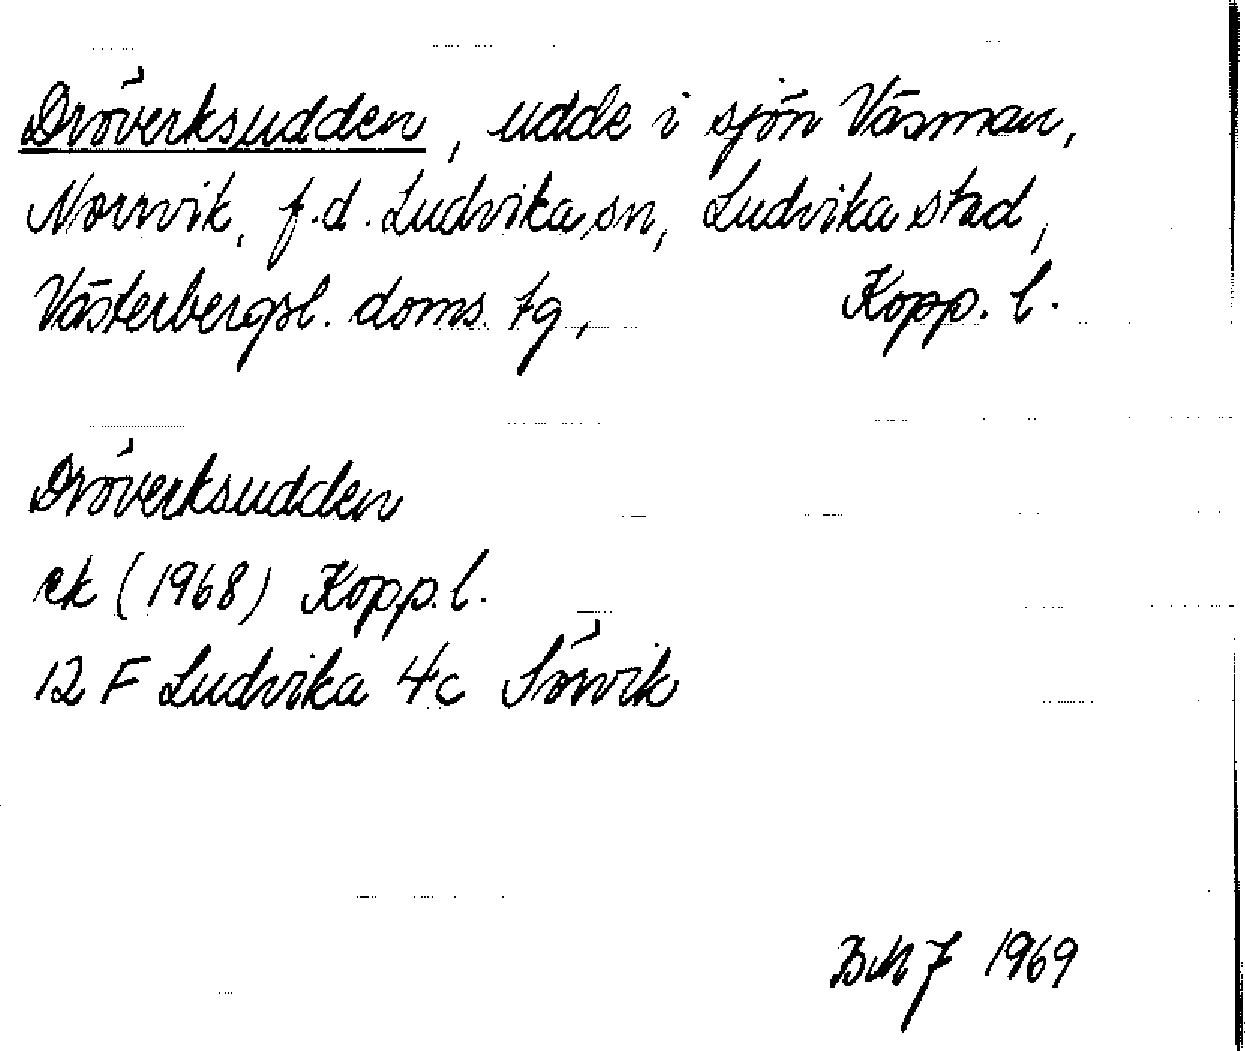 Dröverksudden, udde i sjön Väsman,
Norrvik, f.d. Ludvika sn, Ludvika stad,
Västerbergsl. doms. tg, Kopp. l.
Dröverksudden
ek (1968) Kopp. l.
12 F Ludvika 4c Sörvik
BMJ 1969